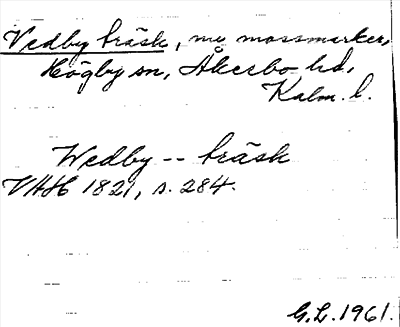 Vedby träsk, nu mossmarker,
Högby sn, Åkerbo hd,
Kalm. l.
Wedby -- träsk
VHH 1821, s. 284.
G.L. 1961.